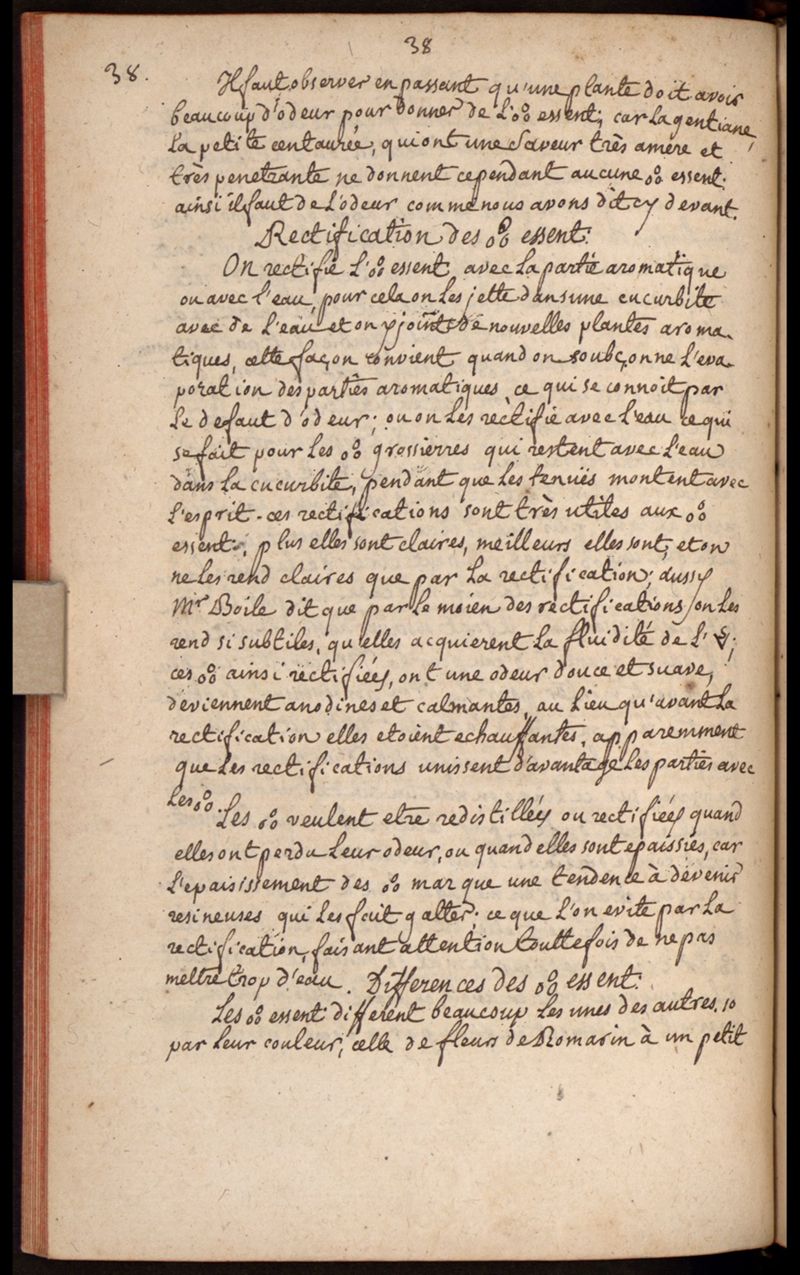 38
38.
Il faut observer en passant qu'une plante doit avoir
beaucoup d'odeur pour donner de l'o°o essent; car la gentiane,
la petite centaurée, qui ont une saveur très amère et
très penetrante ne donnent cependant aucune o°o essent:
ainsi il faut de l'odeur comme nous avons dit cy devant.
Rectification des o°o essent:
On rectifie l'o°o essent, avec la partie aromatique
ou avec l'eau, pour cela on les jette dans une cucurbite
avec de l'eau et on y joint de nouvelles plantes aroma-
tiques, cette façon convient quand on soubçonne l'eva-
poration des parties aromatiques, ce qui se connoit par
le defaut d'odeur; ou on les rectifie avec l'eau ce qui
se fait pour les o°o grossierres qui restent avec l'eau
dans la cucurbite, pendant que les tenuës montent avec
l'esprit. ces rectifications sont très utiles aux o°o
essent., plus elles sont claires, meilleurs elles sont, et on
ne les rend claires que par la rectification; aussy
Mr Boile dit que par le moien des rectifications, on les
rend si subtiles, qu'elles acquierent la fluidité de l';
ces o°o ainsi rectifiées, ont une odeur douce et suave,
deviennent anodines et calmantes, au lieu qu'avant la
rectification elles etoient echauffantes, apparemment
que les rectifications unissent d'avantage les parties avec
les o°o.
Les o°o veulent etre redistillées ou rectifiées quand
elles ont perdu leur odeur, ou quand elles sont epaissies, car
l'epaisissement des o°o marque une tendence à devenir
resineuses qui les fait galter; ce que l'on evite par la
rectification, faisant attention touttefois de ne pas
mettre trop d'eau. Differences des o°o essent:
Les o°o essent: different beaucoup les unes des autres. 1o
par leur couleur, celle de fleurs de Romarin à un petit